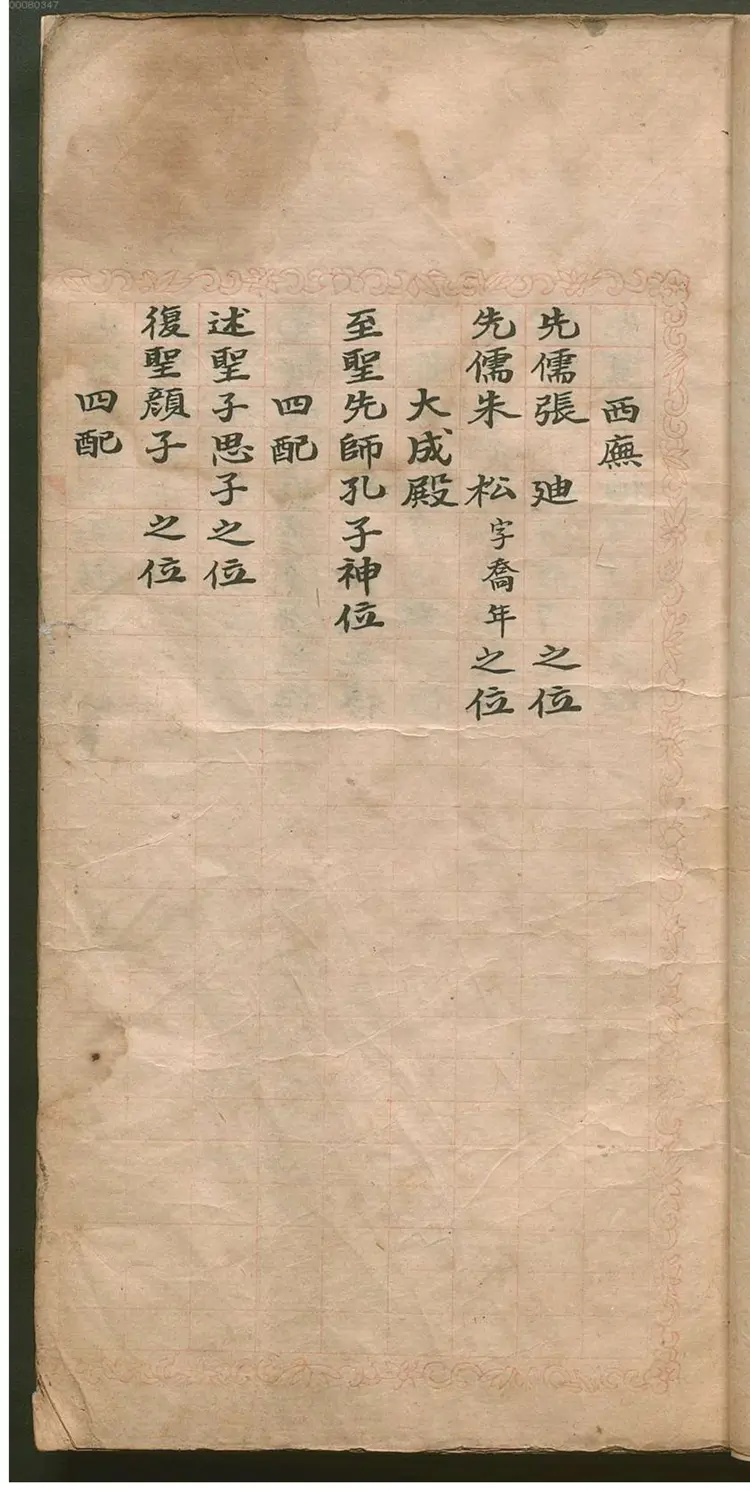 00080347
西廡
先儒張 廸 之位
先儒朱 松字喬年之位
大成殿
至聖先師孔子神位
四配
述聖子思子之位
復聖顏子 之位
四配